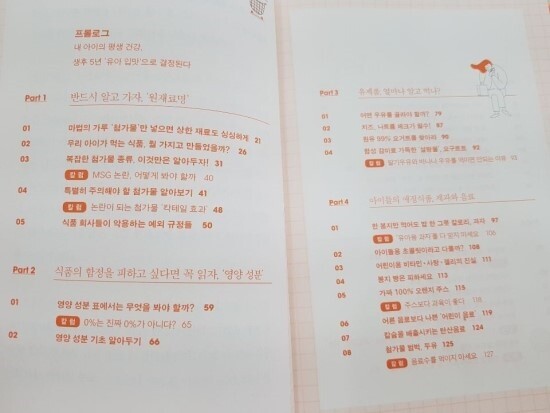 프롤로그
내 아이의 평생 건강,
생후 5년 '유아 입맛'으로 결정된다
Part 1 반드시 알고 가자, '원재료명'
01 마법의 가루 '첨가물'만 넣으면 상한 재료도 싱싱하게 21
02 우리 아이가 먹는 식품, 뭘 가지고 만들었을까? 26
03 복잡한 첨가물 종류, 이것만은 알아두자! 31
칼럼 MSG 논란, 어떻게 봐야 할까 40
04 특별히 주의해야 할 첨가물 알아보기 41
칼럼 논란이 되는 첨가물 '칵테일 효과' 48
05 식품 회사들이 악용하는 예외 규정들 50
Part 2 식품의 함정을 피하고 싶다면 꼭 읽자, '영양 성분'
01 영양 성분 표에서는 무엇을 봐야 할까? 59
칼럼 0%는 진짜 0%가 아니다? 65
02 영양 성분 기초 알아두기 66
Part 3 유제품, 얼마나 알고 먹나?
01 어떤 우유를 골라야 할까? 79
02 치즈, 나트륨 체크가 필수! 87
03 원유 99% 요거트를 찾아라 90
04 함정 감미료 가득한 '설탕물', 요구르트 92
칼럼 딸기우유와 바나나 우유를 먹이면 안되는 이유 95
Part 4 아이들의 애정식품, 과자와 음료
01 한 봉지만 먹어도 밥 한 그릇 칼로리, 과자 97
칼럼 '유아용 과자'를 다 믿지 마세요 106
02 아이들용 초콜릿이라고 다를까? 108
03 어린이용 비타민·사탕·젤리의 진실 111
04 봉지 빵은 피하세요 113
05 가짜 100% 오렌지 주스 115
칼럼 주스보다 과육이 좋다 118
06 어른 음료보다 나쁜 '어린이 음료' 119
07 칼슘을 배출시키는 탄산음료 124
08 첨가물 범벅, 두유 125
칼럼 음료수를 먹이지 마세요 127